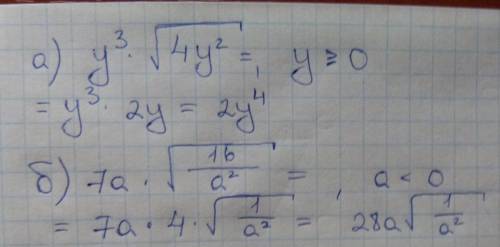 а) y³ · √4y² =, y ≥ 0
= y³ · 2y = 2y⁴
б) 7a · √(16/a²) = , a < 0
= 7a · 4 · √(1/a²) = 28a√(1/a²)